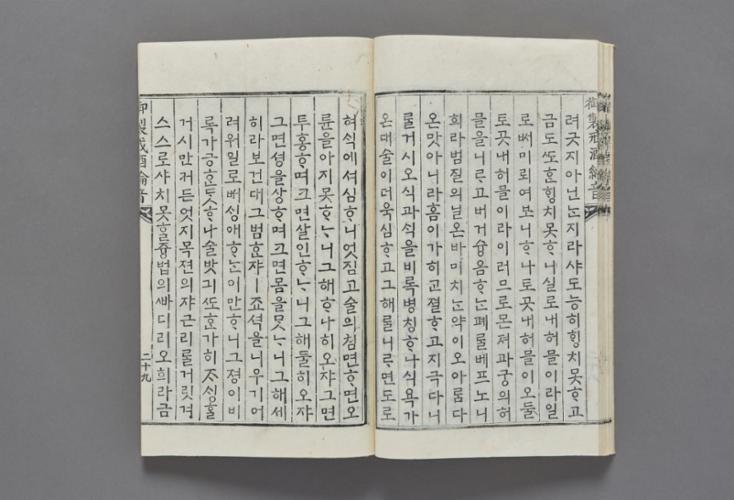 려긋지아닌ᄂᆞᆫ지라샤도능히ᄒᆡᆼ치못ᄒᆞ고
금도ᄯᅩᄒᆞᆫᄒᆡᆼ치못ᄒᆞ니실로내허믈이라일
로ᄡᅥ미뤼여보니ᄒᆞ나토곳내허믈이오둘
토곳내허믈이라이러므로몬져파궁의허
믈을니ᄅᆞ고버거슝음ᄒᆞᄂᆞᆫ폐ᄅᆞᆯ베프노니
희라범질의닐온바미치ᄂᆞᆫ약이오아ᄅᆞᆷ다
온맛아니라홈이가히고졀ᄒᆞ고지극다니
ᄅᆞᆯ거시오식과ᄉᆡᆨ을비록병칭ᄒᆞ나식욕가
온대술이더욱심ᄒᆞ고그해ᄅᆞᆯ니ᄅᆞ면도로
혀식에셔심ᄒᆞ니엇짐고술의침면ᄒᆞ면오
륜을아지못ᄒᆞᄂᆞ니그해ᄒᆞ나히오쟈그면
투홍ᄒᆞ며크면살인ᄒᆞᄂᆞ니그해둘히오쟈
그면셩을샹ᄒᆞ며크면몸을ᄆᆞᆺᄂᆞ니그해세
히라보건대그범ᄒᆞᆫ쟈ㅣ죠셕을니우기어
려워일로ᄡᅥᄉᆡᆼ애ᄒᆞᄂᆞ이만ᄒᆞ니그졍이비
록가긍ᄒᆞᆫᄃᆞᆺᄒᆞ나술밧긔ᄯᅩᄒᆞᆫ가히ᄌᆞᄉᆡᆼᄒᆞᆯ
거시만커든엇지목젼의쟈근리ᄅᆞᆯ거릿겨
스스로샤치못ᄒᆞᆯ즁법의ᄲᅡ디리오희라금
御製戒酒綸音
二十九